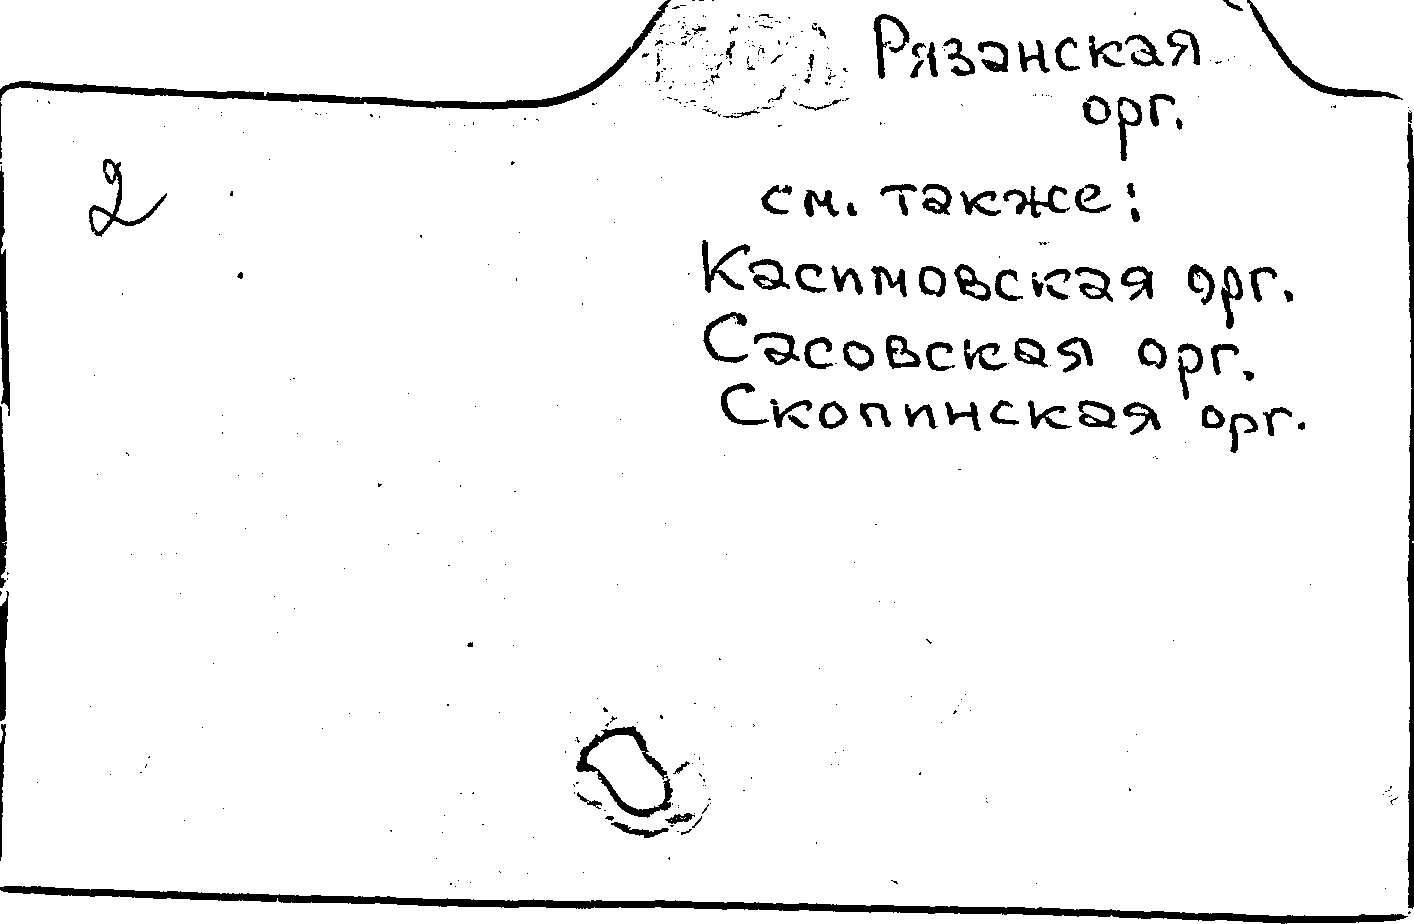 Рязанская
орг.
2
см. также:
Касимовская орг.
Сасовская орг.
Скопинская орг.